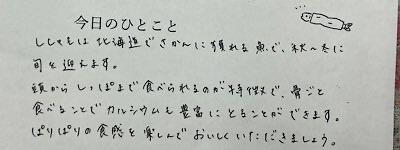 今日のひとこと
ししゃもは北海道でさかんに獲れる魚で、秋〜冬に
旬を迎えます。
頭からしっぽまで食べられるのが特徴で、骨ごと
食べることでカルシウムも豊富にとることができます。
ぱりぱりの食感を楽しんでおいしくいただきましょう。